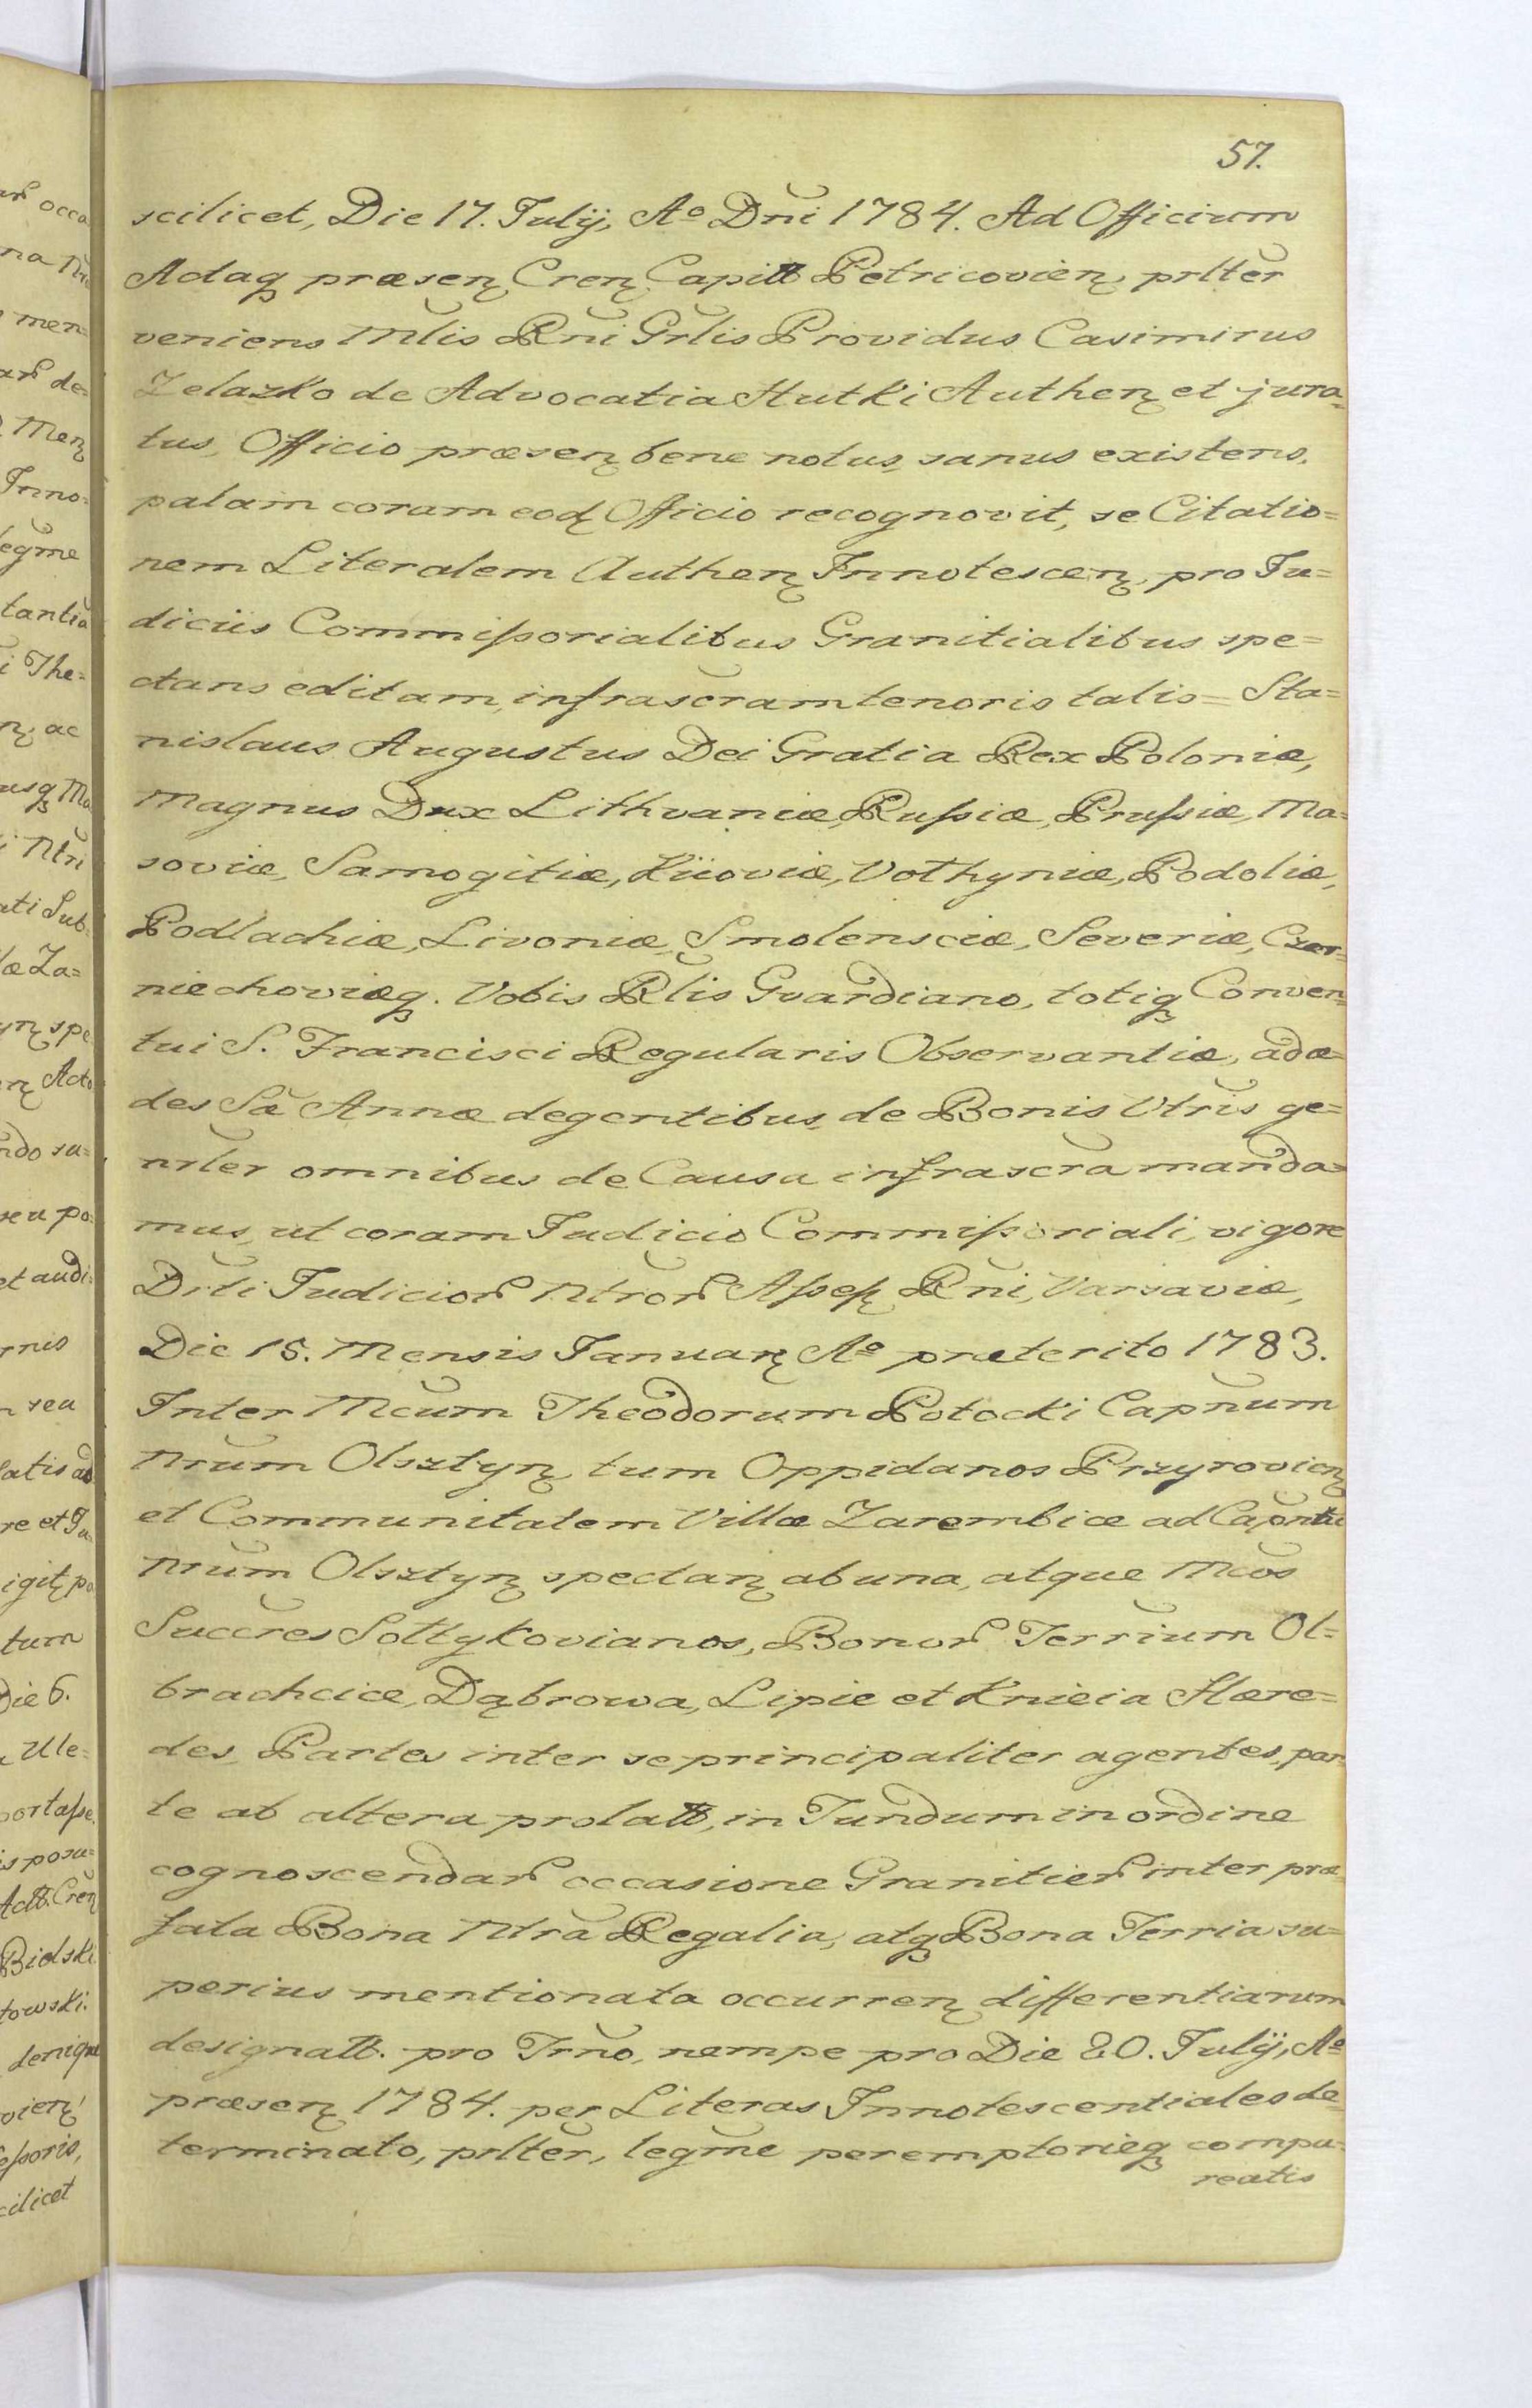 57.
scilicet, Die 17. Julij, Aº Dñi 1784. Ad Officium
Adaq præsen Cren Capitt Petricovien, prltẽr
veniens Mlis Rñi Grlis Providus Casimirus
Zelazko de Advocatia Hutki Authen et jura=
tus, Officio præsen bene notus, sanus existens,
palam coram eod Officio recognovit, se Citatio=
nem Literalem Authen Innotescen, pro Ju=
diciis Commissorialibus Granitialibus spe=
ctans editam, infrascram tenoris talis = Sta=
nislaus Augustus Dei Gratia Rex Poloniæ,
Magnus Dux Lithvaniæ, Russiæ, Prussiæ, Ma=
soviæ, Samogitiæ, Kiioviæ, Volhyniæ, Podoliæ,
Podlachiæ, Livoniæ, Smolensciæ, Severiæ, Czer=
niechoviæq. Vobis Rlis Guardiano, totiq Conven=
tui S. Francisci Regularis Observantiæ, ad æ=
des Sæ Annæ degentibus, de Bonis Vtris ge=
nrler omnibus de Causa infrascra manda=
mus, ut coram Judicio Commissoriali, vigore
Drti Judicior Ntror Assess Rñi, Varsaviæ,
Die 15. Mensis Januar Aº præterito 1783.
Inter Mcum Theodorum Potocki Capnum
Nrum Olsztyn, tum Oppidanos Przyrovien
et Communitatem Villæ Zarembice ad Capntu
Nrum Olsztyn spectan ab una, atque Mcos
Succres Soltykovianos, Bonor Terrium Ol=
brachcice, Dąbrowa, Lipie et Knieia Hære=
des, Partes inter se principaliter agentes, par=
te ab altera prolatt, in Fundum in ordine
cognoscendar occasione Granitier inter præ
fata Bona Ntra Regalia, atq Bona Terria su=
perius mentionata occurren differentiarum
designatt. pro Trno, nempe pro Die 20. Julij, Aº
præsen 1784. per Literas Innotescentiales de=
terminato, prltẽr, legme peremptorieq compa=
reatis